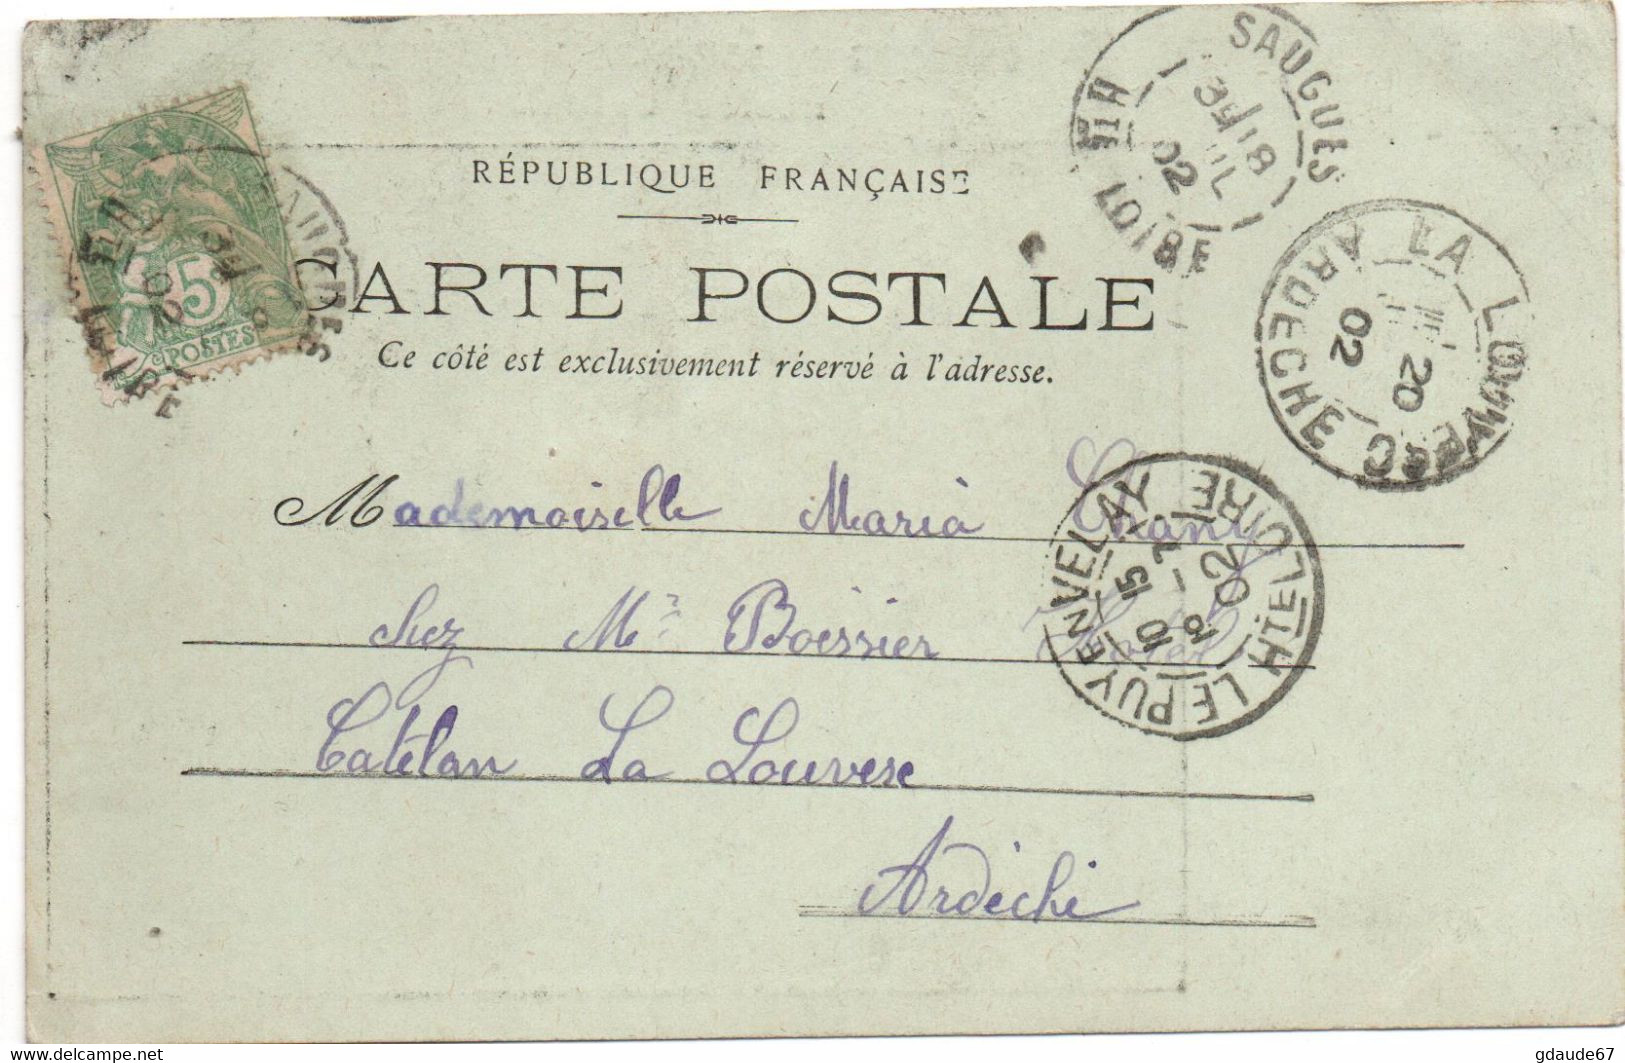 SAUGUES
Hte LOIRE
3E / 18
JUIL
02
RÉPUBLIQUE FRANÇAISE
CARTE POSTALE
Ce côté est exclusivement réservé à l'adresse.
5
POSTES
LA LOUVESC
ARDECHE
20
02
Mademoiselle Maria Chany
chez Mr Boissier Hotel
Catelan La Louvesc
Ardèche
LE PUY EN VELAY
HTE LOIRE
10 15
02
gdaude67
www.delcampe.net